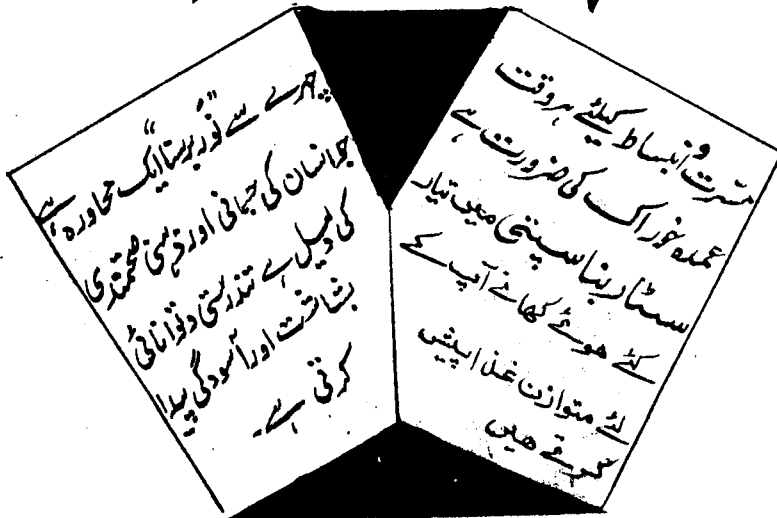 مسرت و انبساط کیلئے ہر وقت
عمدہ خوراک کی ضرورت ہے
سٹار بناسپتی میں تیار
کئے ہوئے کھانے آپ کے
لئے متوازن غذا پیش
کرتے ہیں
چہرے سے "نور برسنا" ایک محاورہ ہے
جو انسان کی جسمانی اور ذہنی صحتمندی
کی دلیل ہے تندرستی و توانائی
بشاشت اور آسودگی پیدا
کرتی ہے۔